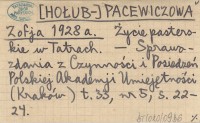 [HOŁUB-] PACEWICZOWA
Zofja 1928 a. Życie paster-
skie w Tatrach. — Spraw-
zdania z Czynności i Posiedzeń
Polskiej Akademji Umiejętności
(Kraków) t. 33, nr 5, s. 22-
24.